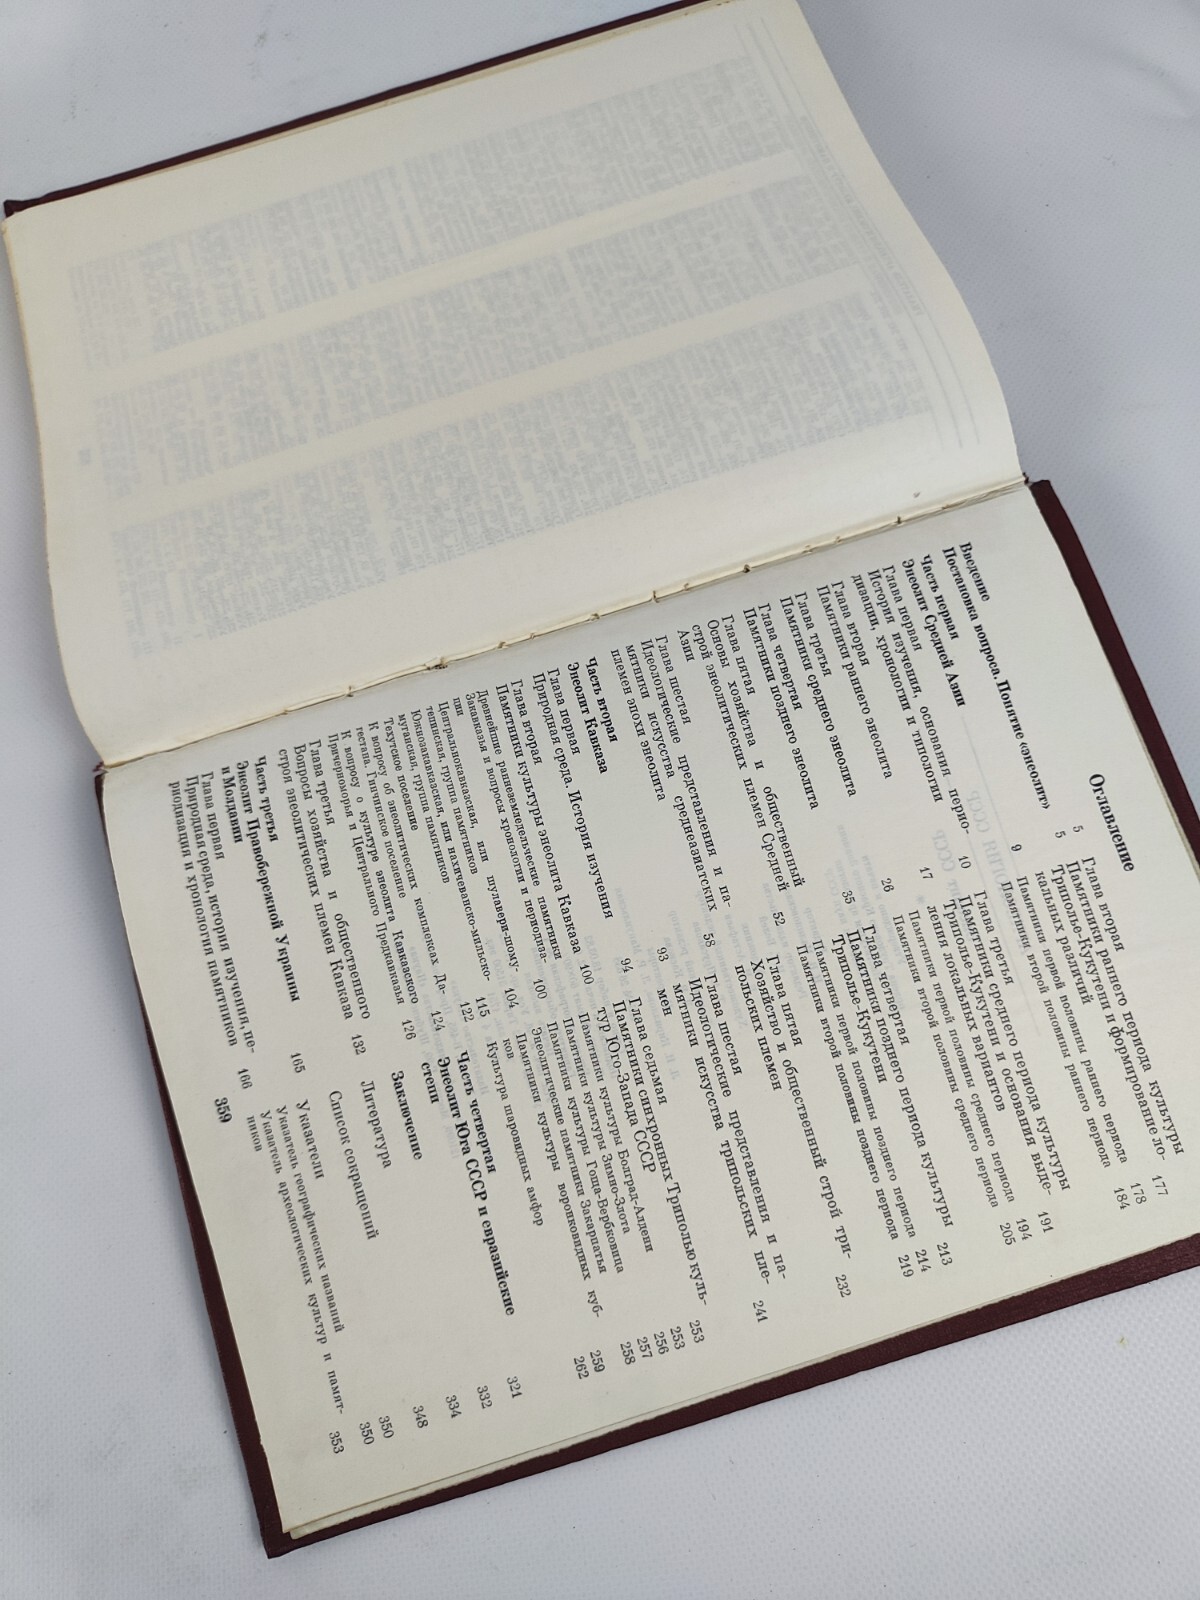 Оглавление
Введение
Постановка вопроса. Понятие «энеолит» 5
5
Часть первая
Энеолит Средней Азии 9
Глава первая
История изучения, основания перио-
дизации, хронологии и типологии 10
Глава вторая
Памятники раннего энеолита 17
Глава третья
Памятники среднего энеолита 26
Глава четвертая
Памятники позднего энеолита 35
Глава пятая
Основы хозяйства и общественный
строй энеолитических племен Средней
Азии 52
Глава шестая
Идеологические представления и па-
мятники искусства среднеазиатских
племен эпохи энеолита 58
Часть вторая
Энеолит Кавказа 93
Глава первая
Природная среда. История изучения 94
Глава вторая
Памятники культуры энеолита Кавказа 100
Древнейшие раннеземледельческие памятники
Закавказья и вопросы хронологии и периодиза-
ции 100
Центральнокавказская, или шулавери-шому-
тепинская, группа памятников 104
Южнозакавказская, или нахичеванско-мильско-
муганская, группа памятников 115
Техутское поселение 122
К вопросу об энеолитических комплексах Да-
гестана. Гинчинское поселение 124
К вопросу о культуре энеолита Кавказского
Причерноморья и Центрального Предкавказья 126
Глава третья
Вопросы хозяйства и общественного
строя энеолитических племен Кавказа 132
Часть третья
Энеолит Правобережной Украины
и Молдавии 165
Глава первая
Природная среда, история изучения, пе-
риодизация и хронология памятников 166
Глава вторая
Памятники раннего периода культуры
Триполье-Кукутени и формирование ло-
кальных различий 177
Памятники первой половины раннего периода 178
Памятники второй половины раннего периода 184
Глава третья
Памятники среднего периода культуры
Триполье-Кукутени и основания выде-
ления локальных вариантов 191
Памятники первой половины среднего периода 194
Памятники второй половины среднего периода 205
Глава четвертая
Памятники позднего периода культуры
Триполье-Кукутени 213
Памятники первой половины позднего периода 214
Памятники второй половины позднего периода 219
Глава пятая
Хозяйство и общественный строй три-
польских племен 232
Глава шестая
Идеологические представления и па-
мятники искусства трипольских пле-
мен 241
Глава седьмая
Памятники синхронных Триполью куль-
тур Юго-Запада СССР 253
Памятники культуры Болград-Алдени 253
Памятники культуры Зимно-Злота 256
Памятники культуры Гоща-Вербковица 257
Энеолитические памятники Закарпатья 258
Памятники культуры воронковидных куб-
ков 259
Культура шаровидных амфор 262
Часть четвертая
Энеолит Юга СССР и евразийские
степи 321
Заключение 332
Литература 334
Список сокращений 348
Указатели 350
Указатель географических названий 350
Указатель археологических культур и памят-
ников 353
359